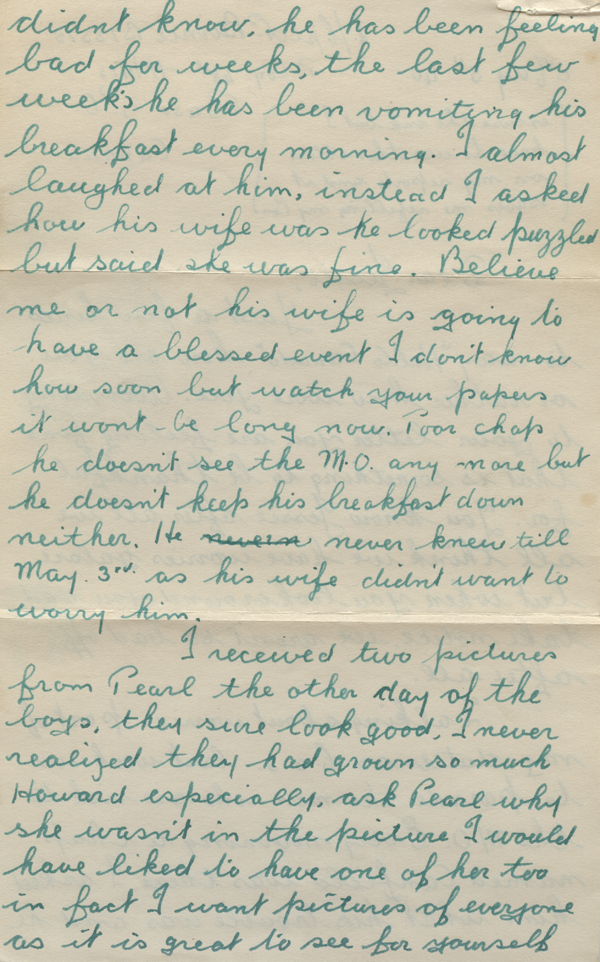 didnt know, he has been feeling
bad for weeks, the last few
weeks he has been vomiting his
breakfast every morning. I almost
laughed at him, instead I asked
how his wife was he looked puzzled
but said she was fine. Believe
me or not his wife is going to
have a blessed event I don't know
how soon but watch your papers
it wont be long now. Poor chap
he doesn't see the M.O. any more but
he doesn't keep his breakfast down
neither. He never knew till
May. 3rd. as his wife didn't want to
worry him.
I received two pictures
from Pearl the other day of the
boys, they sure look good, I never
realized they had grown so much
Howard especially, ask Pearl why
she wasn't in the picture I would
have liked to have one of her too
in fact I want pictures of everyone
as it is great to see for yourself